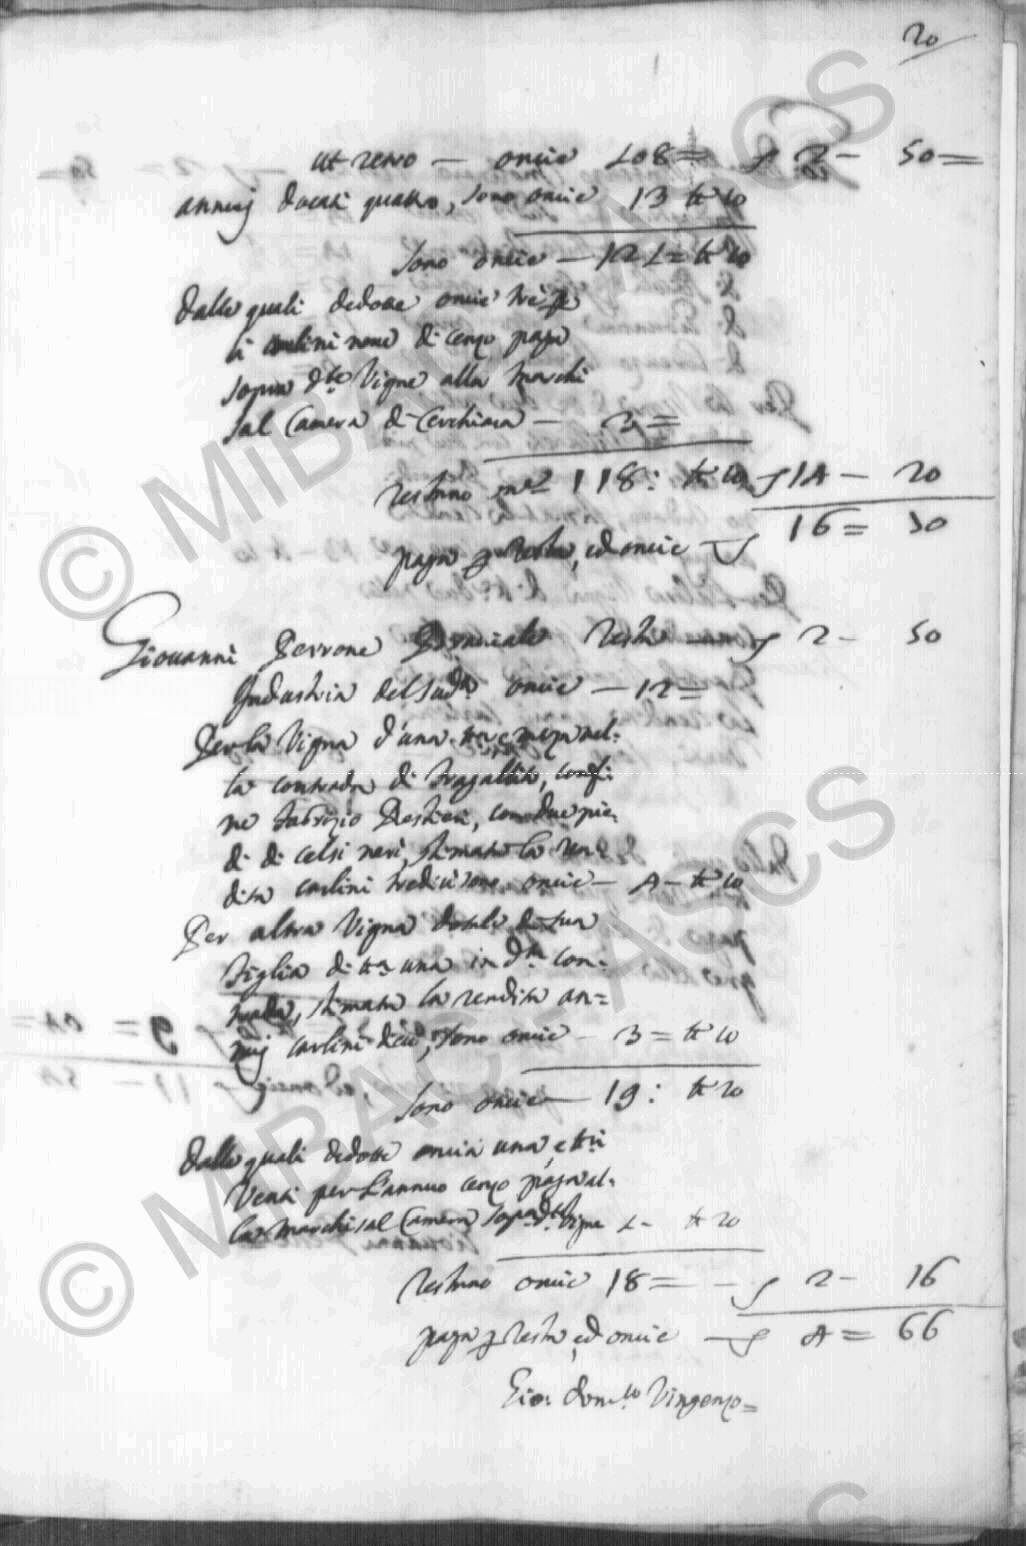 20
ut retro — oncie 108 = f 2 — 50 =
annuj docati quattro, sono oncie 13 tt 10
sono oncie — 121 = tt 10
Dalle quali dedotte oncie tre pe
li carlini nove di cenzo paga
sopra dte Vigne alla Marchi
sal Camera di Cerchiara — 3 =
restano onc 118 : tt 10 f 14 — 20
paga p testa, ed oncie — f 16 = 30
Giovanni Perrone Bracciale testa — f 2 — 50
Industria del sudto oncie — 12 =
Per la Vigna d'una tta e meza nel-
la contrada di confi-
ne Fabrizio con due pie-
di di celsi neri, stimata la ren-
dita carlini tredici sono oncie — 4 — tt 10
Per altra Vigna dotale di sua
figlia di tta una in dta con-
trada, stimata la rendita an=
nuj carlini dieci, sono oncie — 3 = tt 10
sono oncie — 19 : tt 20
Dalle quali dedotte oncia una, e ttri
Venti per l'annuo cenzo paga al-
la Marchisal Camera sopra dte Vigne 1 — tt 20
restano oncie 18 = — f 2 — 16
paga p testa, ed oncie — f 4 = 66
Gio: Domco Vingenzo =
© MIBAC - ASCS
© MIBAC - ASCS